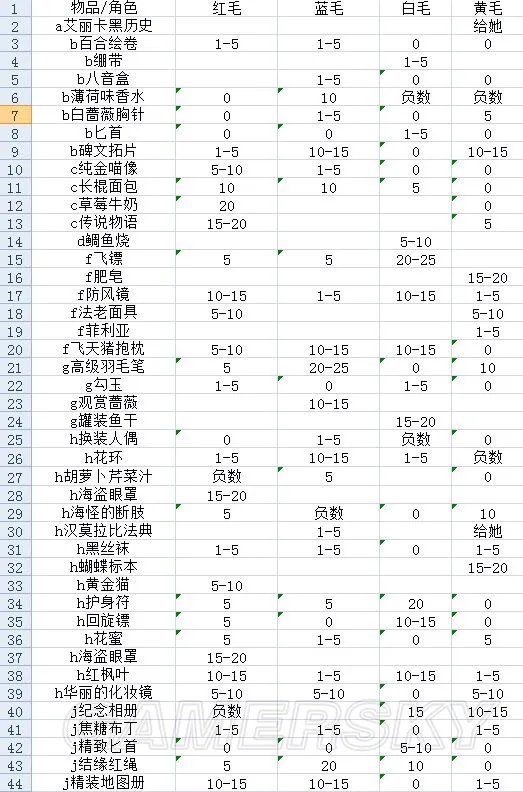 1 物品/角色 红毛 蓝毛 白毛 黄毛
2 a艾丽卡黑历史 给她
3 b百合绘卷 1-5 1-5 0 0
4 b绷带 1-5
5 b八音盒 1-5 0 0
6 b薄荷味香水 0 10 负数 负数
7 b白蔷薇胸针 0 1-5 0 5
8 b匕首 0 0 1-5 0
9 b碑文拓片 1-5 10-15 0 10-15
10 c纯金喵像 5-10 1-5 0 0
11 c长棍面包 10 10 5 0
12 c草莓牛奶 20 0
13 c传说物语 15-20 5
14 d鲷鱼烧 5-10
15 f飞镖 5 5 20-25
16 f肥皂 15-20
17 f防风镜 10-15 1-5 10-15 1-5
18 f法老面具 5-10 5-10
19 f菲利亚 1-5
20 f飞天猪抱枕 5-10 10-15 10-15 0
21 g高级羽毛笔 5 20-25 0 10
22 g勾玉 1-5 0 1-5 0
23 g观赏蔷薇 10-15
24 g罐装鱼干 15-20
25 h换装人偶 0 1-5 负数 0
26 h花环 1-5 10-15 1-5 负数
27 h胡萝卜芹菜汁 负数 5 0
28 h海盗眼罩 15-20
29 h海怪的断肢 5 负数 0 10
30 h汉莫拉比法典 1-5 给她
31 h黑丝袜 1-5 1-5 0 1-5
32 h蝴蝶标本 15-20
33 h黄金猫 5-10
34 h护身符 5 5 20 0
35 h回旋镖 5 0 10-15 0
36 h花蜜 5 1-5 0 5
37 h海盗眼罩 15-20
38 h红枫叶 10-15 1-5 10-15 1-5
39 h华丽的化妆镜 5-10 5-10 0 5-10
40 j纪念相册 负数 15 10-15
41 j焦糖布丁 1-5 1-5 0 1-5
42 j精致匕首 0 0 5-10 0
43 j结缘红绳 5 20 10 0
44 j精装地图册 10-15 10-15 0 1-5
GAMERSKY